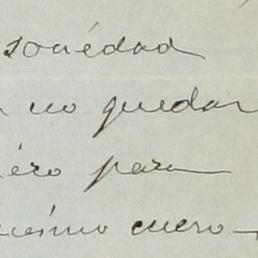 sociedad
no quedar
para
mismo cuero